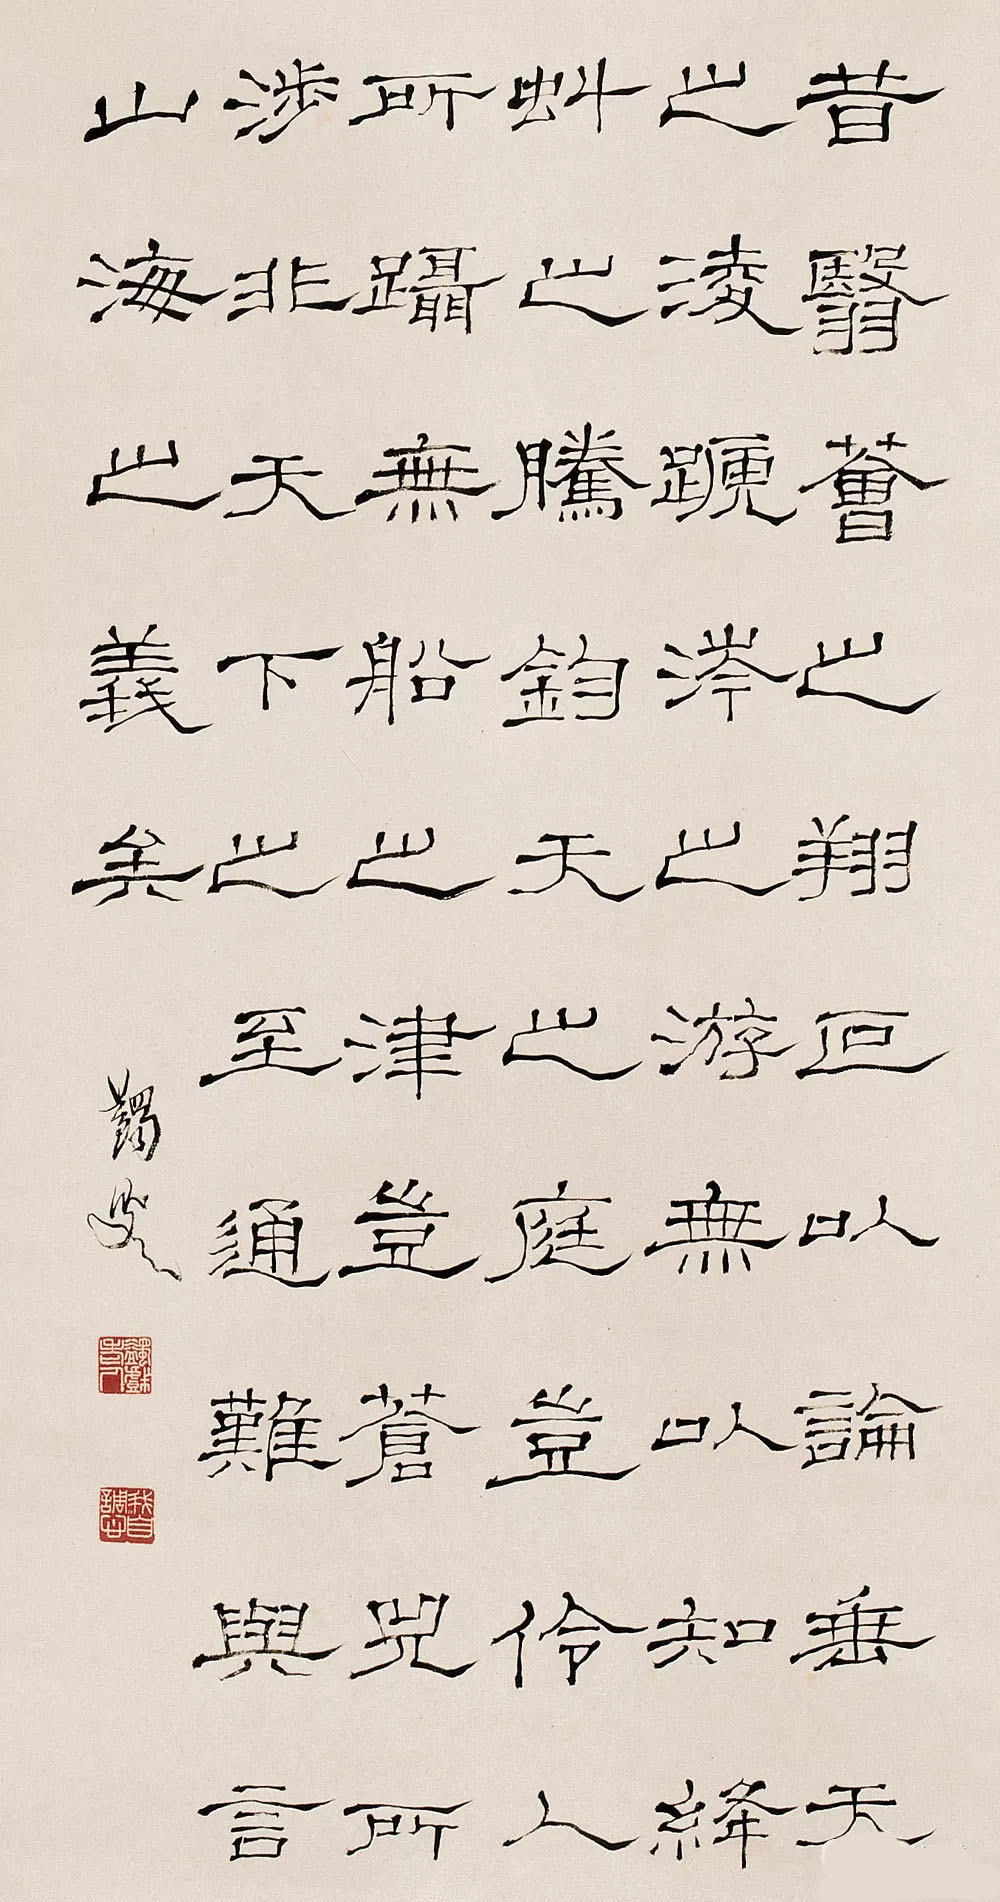 昔翳薈之翔叵以論垂天
之淩蹏涔之游無以知絳
虯之騰鈞天之庭豈伶人
所躡無船之津豈蒼兕所
涉非天下之至通難與言
山海之義矣
蠲叟
蠲戲老人